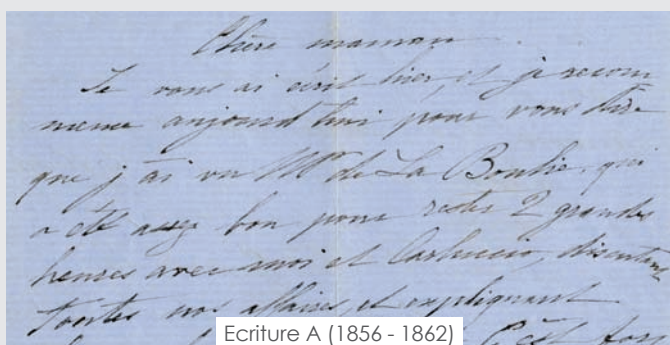 Chère maman.
Je vous ai écrit hier et je recom
mence aujourd'hui pour vous dire
que j'ai vu Mr de La Boulie, qui
a été assez bon pour rester 2 grandes
heures avec moi et Carluccio, discutant
toutes nos affaires, et expliquant
C'est
Ecriture A (1856 - 1862)